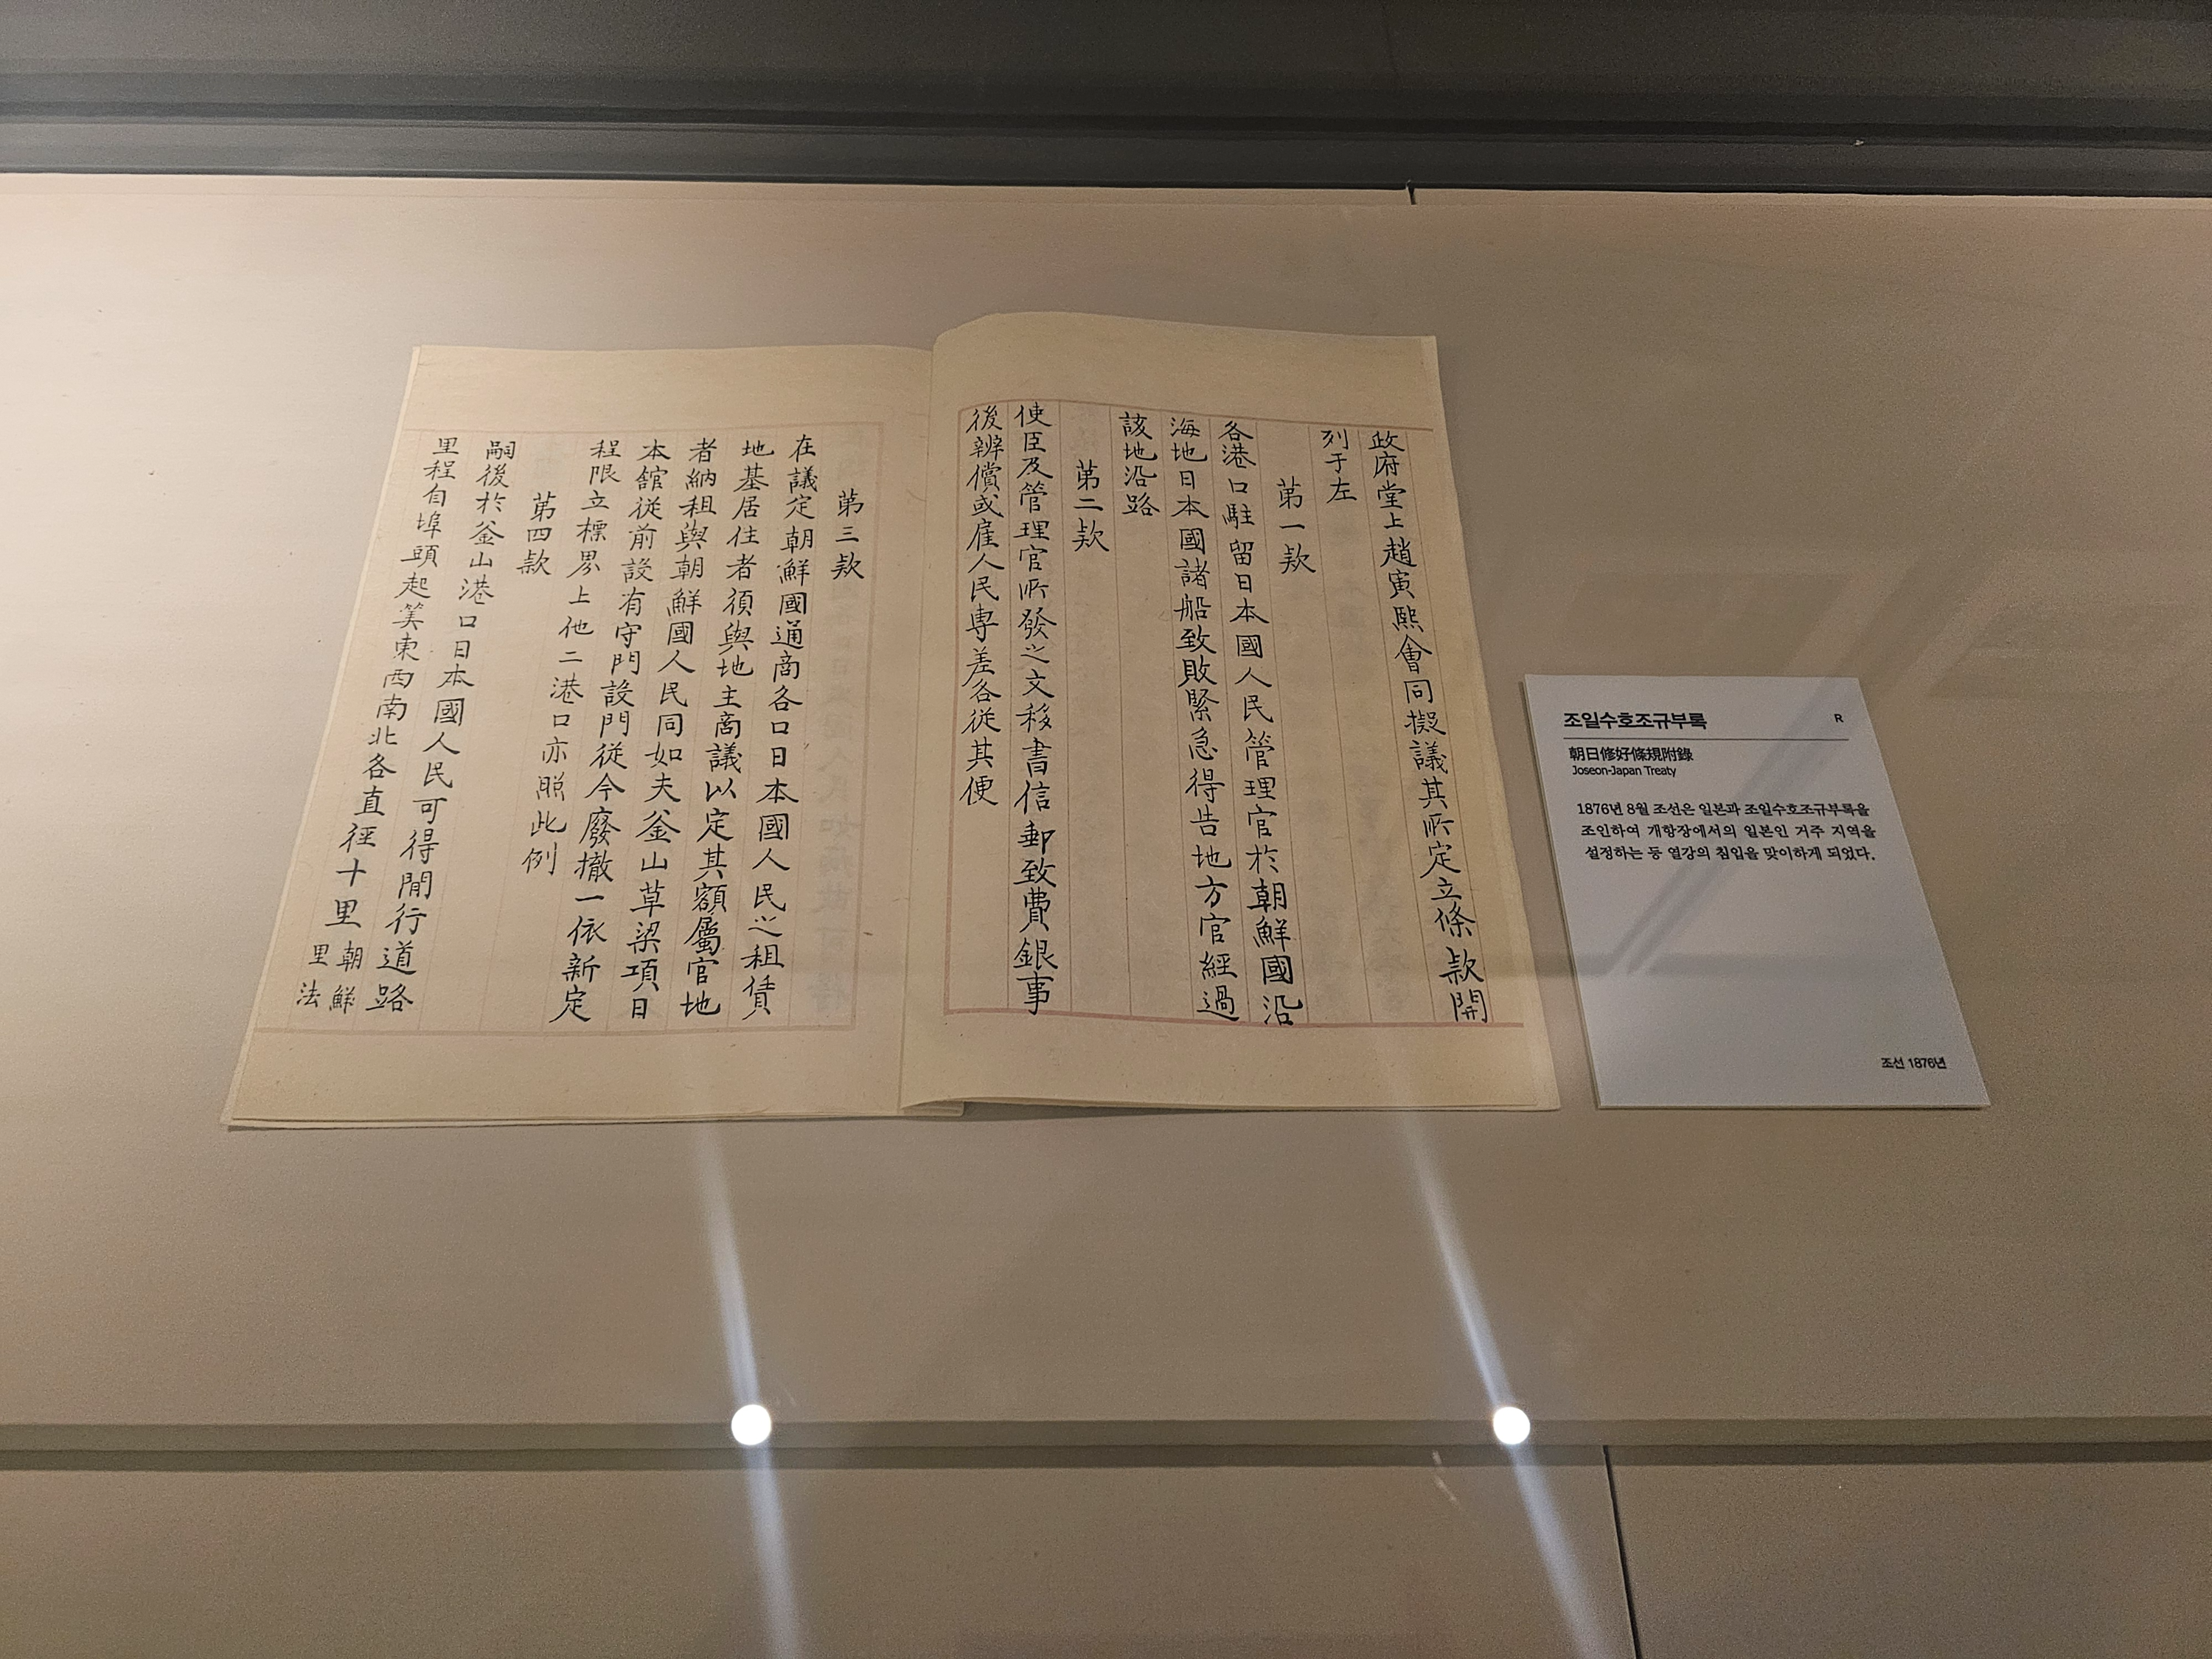 政府堂上趙寅熙會同擬議其所定立條款開
列于左
第一款
各港口駐留日本國人民管理官於朝鮮國沿
海地日本國諸船致敗緊急得告地方官經過
該地沿路
第二款
使臣及管理官所發之文移書信郵致費銀事
後辨償或雇人民専差各從其便
第三款
在議定朝鮮國通商各口日本國人民之租賃
地基居住者須與地主商議以定其額屬官地
者納租與朝鮮國人民同如夫釜山草梁項日
本館從前設有守門設門從今廢撤一依新定
程限立標界上他二港口亦照此例
第四款
嗣後於釜山港口日本國人民可得間行道路
里程自埠頭起算東西南北各直徑十里朝鮮
里法
조일수호조규부록
R
朝日修好條規附錄
Joseon-Japan Treaty
1876년 8월 조선은 일본과 조일수호조규부록을
조인하여 개항장에서의 일본인 거주 지역을
설정하는 등 열강의 침입을 맞이하게 되었다.
조선 1876년